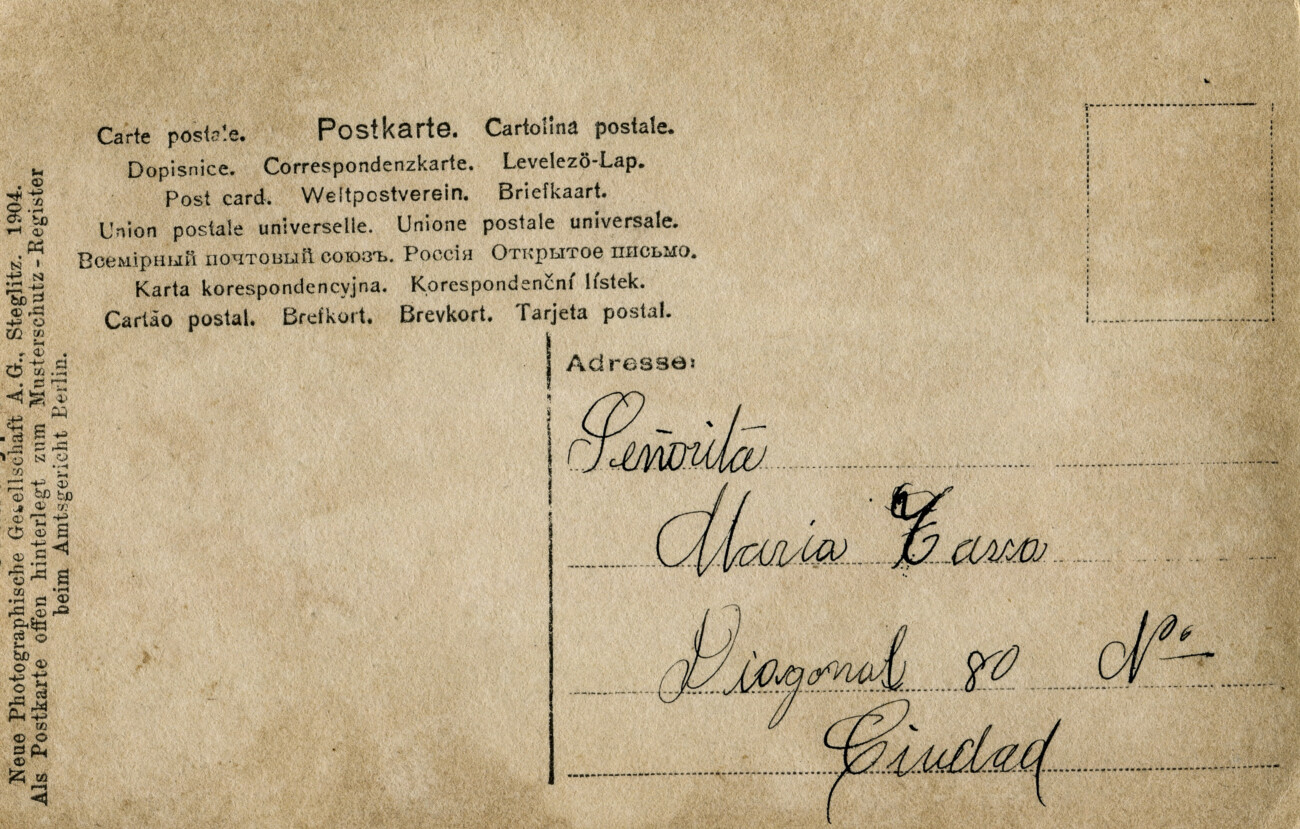 Carte postale. Postkarte. Cartolina postale.
Dopisnice. Correspondenzkarte. Levelező-Lap.
Post card. Weltpostverein. Briefkaart.
Union postale universelle. Unione postale universale.
Всемірный почтовый союзъ. Россія Открытое письмо.
Karta korespondencyjna. Korespondenční lístek.
Cartão postal. Brefkort. Brevkort. Tarjeta postal.
Neue Photographische Gesellschaft A.G., Steglitz. 1904.
Als Postkarte offen hinterlegt zum Musterschutz-Register
beim Amtsgericht Berlin.
Adresse:
Señorita
Maria
Diagonal 80 Nº
Ciudad